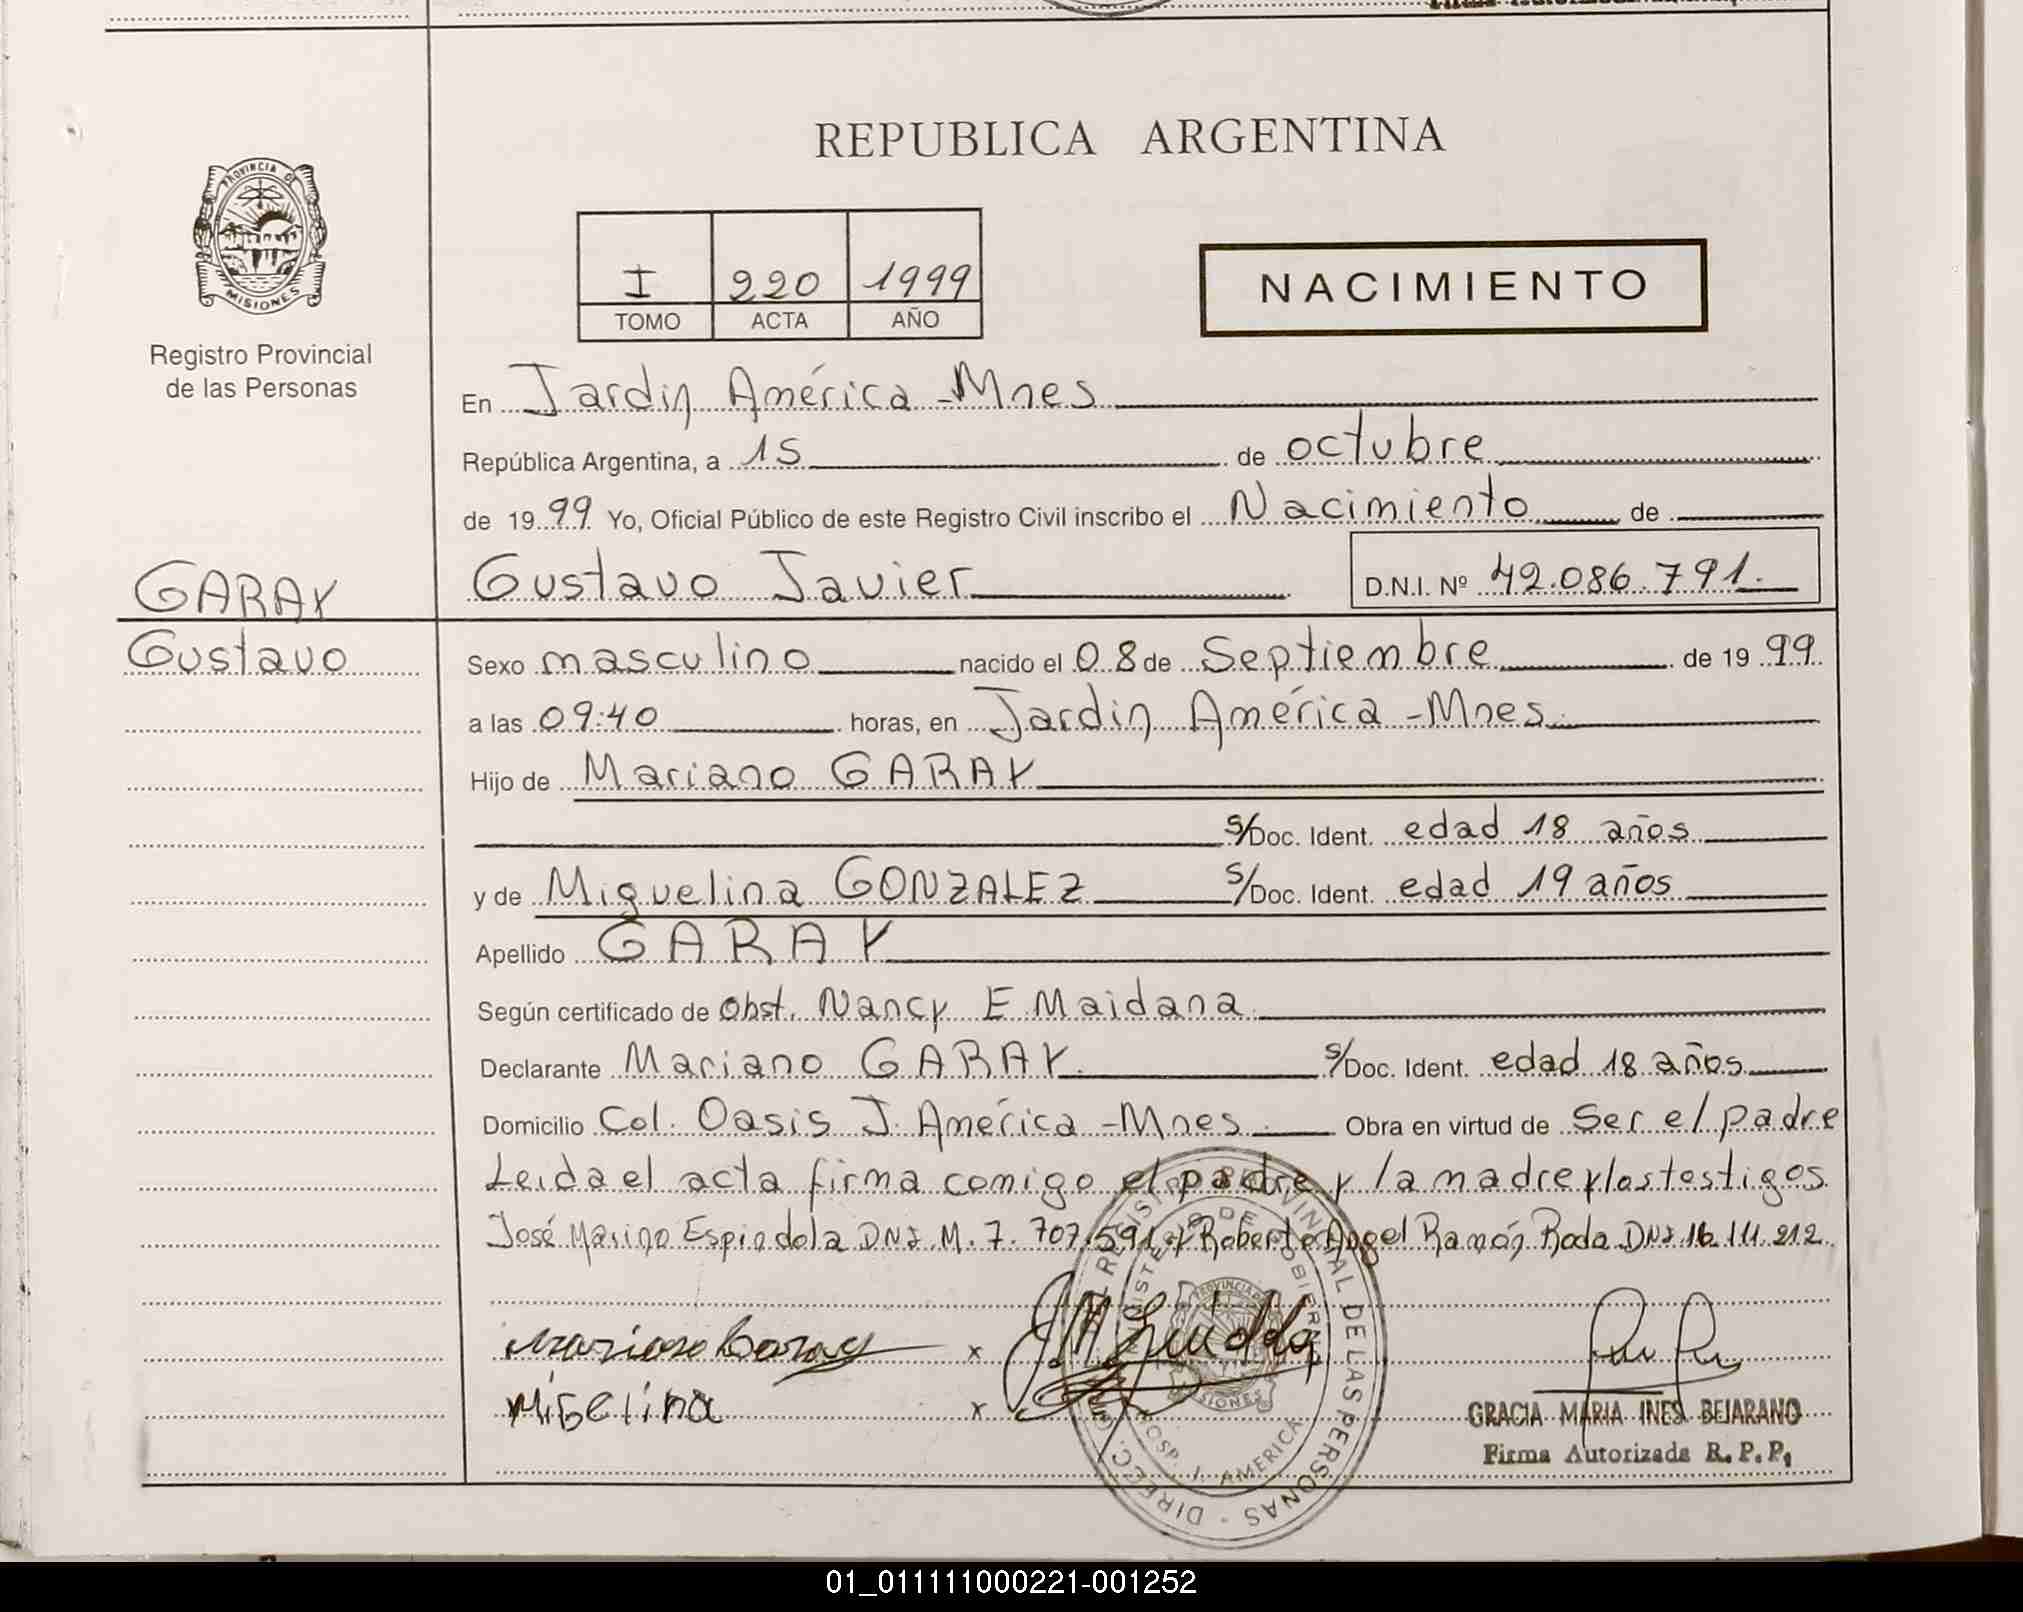 REPUBLICA ARGENTINA
PROVINCIA DE
MISIONES
Registro Provincial
de las Personas
I 220 1999
TOMO ACTA AÑO
NACIMIENTO
En Jardin América - Mnes
República Argentina, a 15 de octubre
de 1999 Yo, Oficial Público de este Registro Civil inscribo el Nacimiento de
GARAY Gustavo Javier D.N.I. Nº 42.086.791.
Gustavo Sexo masculino nacido el 08 de Septiembre de 1999
a las 09:40 horas, en Jardin América - Mnes.
Hijo de Mariano GARAY
S/Doc. Ident. edad 18 años
y de Miguelina GONZALEZ S/Doc. Ident. edad 19 años
Apellido GARAY
Según certificado de obst. Nancy E Maidana.
Declarante Mariano GARAY. S/Doc. Ident. edad 18 años
Domicilio Col. Oasis J. América - Mnes. Obra en virtud de Ser el padre
Leida el acta firma comigo el padre y la madre y los testigos
José Marino Espindola DNI. M. 7.707.591 y Roberto Angel Ramón Roda DNI. 16.111.212.
Mariano Garay x
Migelina x
GRACIA MARIA INES BEJARANO
Firma Autorizada R. P. P.
DIREC. GRAL. REGISTRO PROVINCIAL DE LAS PERSONAS
MINISTERIO DE GOBIERNO
HOSP. J. AMERICA
01_011111000221-001252